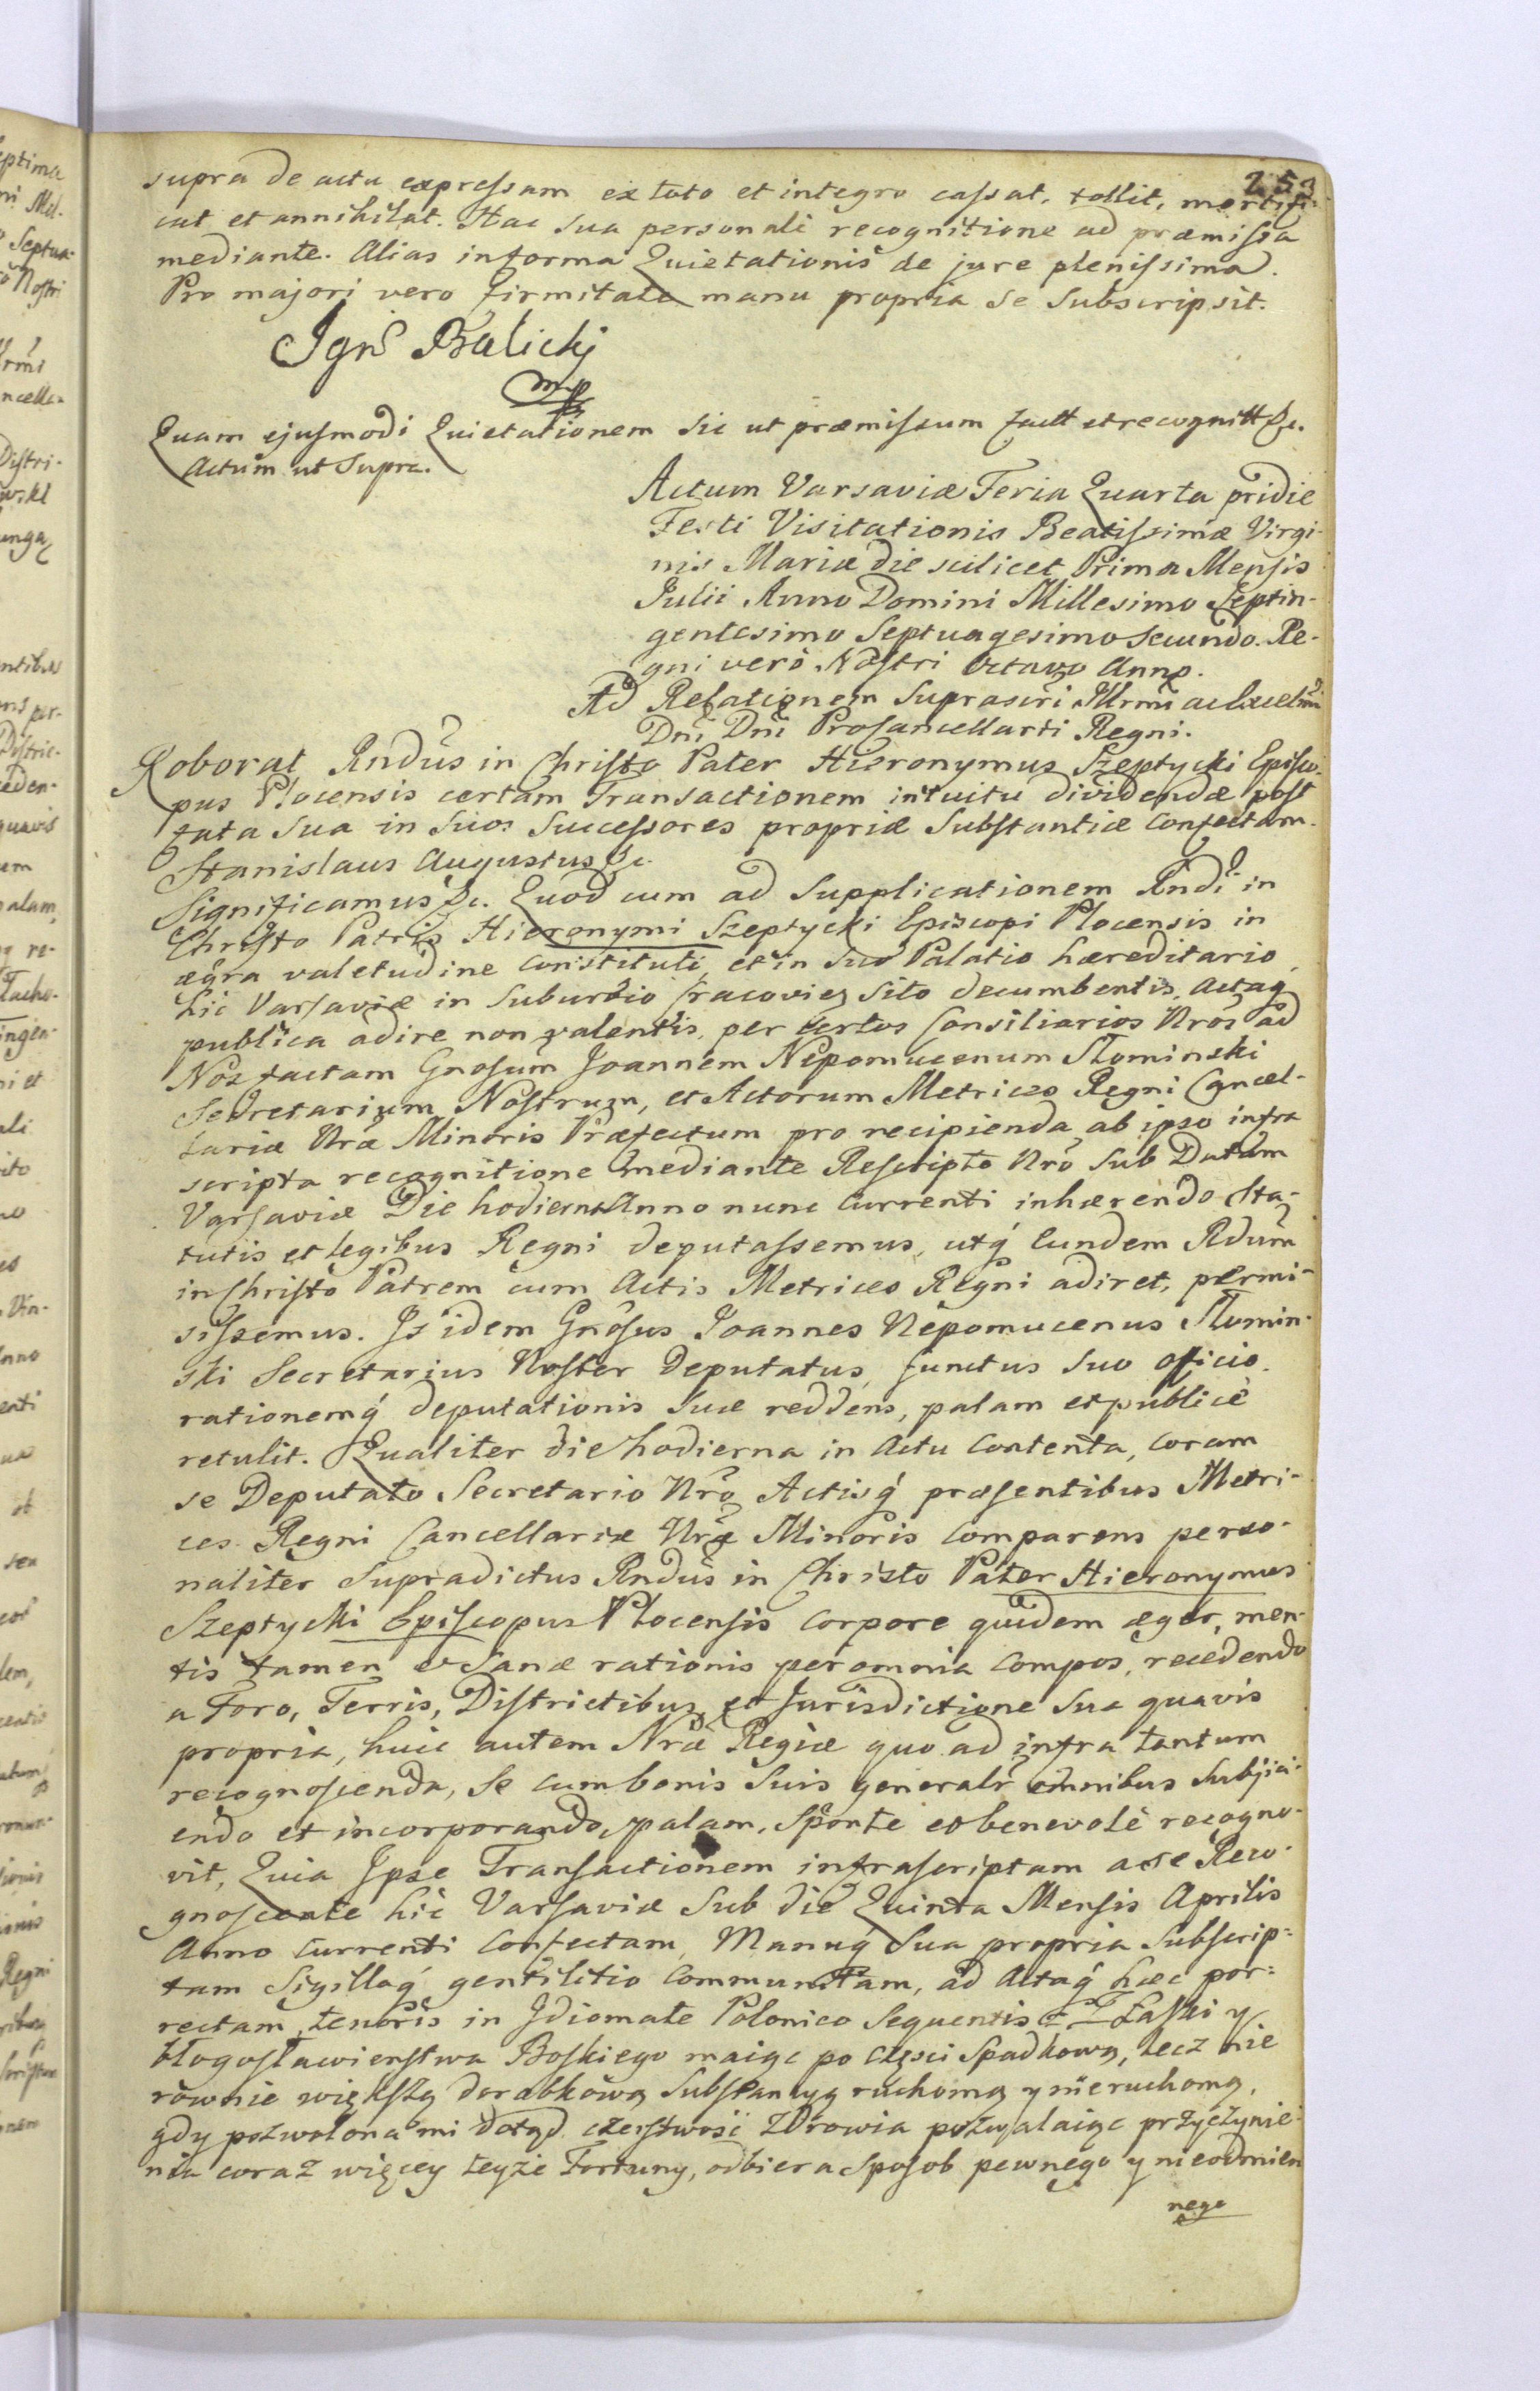 253
supra de actu expressam ex toto et integro cassat, tollit, mortifi-
cat et annihilat. Hac sua personali recognitione ad præmissa
mediante. Alias in forma Quietationis de jure plenissima.
Pro majori vero firmitate manu propria se subscripsit.
Ign̄s Balicki
mp
Quam ejusmodi Quietationem sic ut præmissum factt et recognitt &c.
Actum ut supra.
Actum Varsaviæ Feria Quarta pridie
Festi Visitationis Beatissimæ Virgi-
nis Mariæ die scilicet Prima Mensis
Julii Anno Domini Millesimo Septin-
gentesimo Septuagesimo Secundo. Re-
gni verò Nostri Octavo Anno.
Ad Relationem Suprascri Illrmi ac Excelmi
Dni Dni Procancellarii Regni.
Roborat Rndus in Christo Pater Hieronymus Szeptycki Episco-
pus Plocensis certam Transactionem intuitu dividendæ post
fata sua in suos Successores propriæ Substantiæ Confectam.
Stanislaus Augustus &c.
Significamus &c. Quod cum ad Supplicationem Rndi in
Christo Patris Hieronymi Szeptycki Episcopi Plocensis in
ægra valetudine Constituti, et in Suo Palatio hæreditario,
hic Varsaviæ in Suburbio Cracovien sito decumbentis, Actaq́
publica adire non valentis, per certos Consiliarios Nrōs ad
Nos factam Gnosum Joannem Nepomucenum Słominski
Secretarium Nostrum, et Actorum Metrices Regni Cancel-
lariæ Nræ Minoris Præfectum pro recipienda ab ipso infra
scripta recognitione mediante Rescripto Nrō sub Datum
Varsaviæ Die hodierna Anno nunc Currenti inhærendo Sta-
tutis et legibus Regni deputassemus, utq́ Eundem Rdum
in Christo Patrem cum Actis Metrices Regni adiret, permi-
sissemus. Is idem Gnōsus Joannes Nepomucenus Słomin-
ski Secretarius Noster Deputatus, functus suo officio
rationemq́ deputationis suæ reddens, palam et publicè
retulit. Qualiter die hodierna in Actu Contenta, coram
se Deputato Secretario Nrō Actisq́ præsentibus Metri-
ces Regni Cancellariæ Nræ Minoris Comparens perso-
naliter Supradictus Rndus in Christo Pater Hieronymus
Szeptycki Episcopus Plocensis Corpore quidem æger, men-
tis tamen et Sanæ rationis per omnia Compos, recedendo
a Foro, Terris, Districtibus et Jurisdictione Sua quavis
propria, huic autem Nræ Regiæ quo ad infra tantum
recognoscenda, Se cum bonis suis generalr omnibus Subjici-
endo et incorporando, palam, Sponte et benevolè recogno-
vit, Quia Ipse Transactionem infrascriptam a se Reco-
gnoscente hic Varsaviæ Sub die Quinta Mensis Aprilis
Anno Currenti Confectam, Manuq́ Sua propria Subscrip-
tam Sigilloq́ gentilitio Communitam, ad Actaq́ hæc por-
rectam, tenoris in Idiomate Polonico Sequentis Z Łaski y
błogosławienstwa Boskiego maiąc po częsci Spadkową, lecz nie
równie większą dorobkową Substancyą ruchomą y nieruchomą,
gdy pozwolona mi dotąd czerstwość zdrowia pozwalaiąc przyczynie-
niu coraz więcey teyże Fortuny, odbiera sposob pewnego y nieodmien
nego